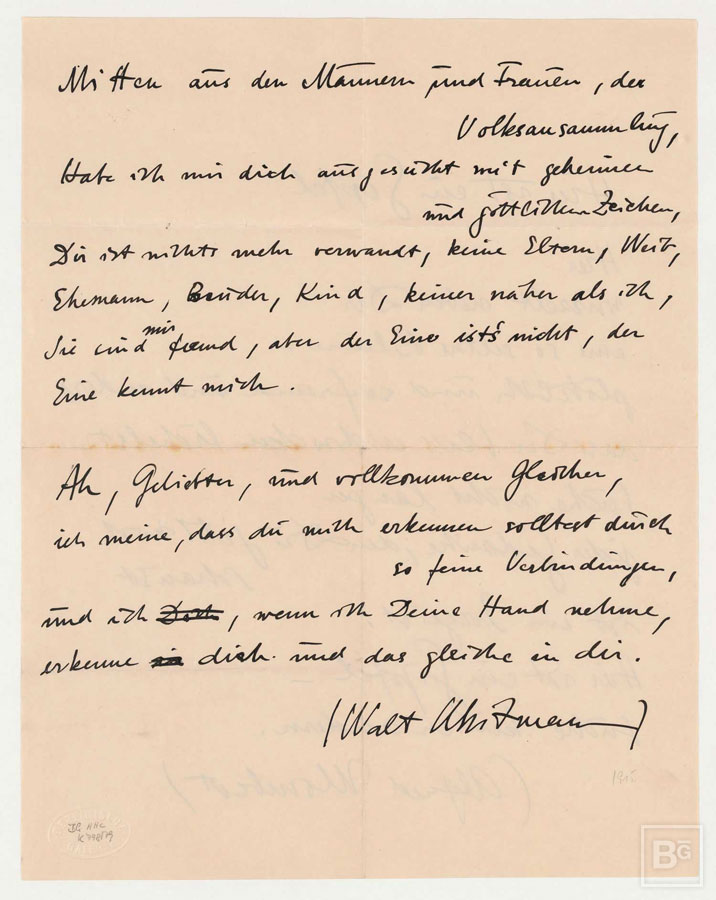 Mitten aus den Männern und Frauen, der
Volksansammlung,
Habe ich mir dich ausgesucht mit geheimen
und göttlichen Zeichen,
Dir ist nichts mehr verwandt, keine Eltern, Weib,
Ehemann, Bruder, Kind, keiner näher als ich,
Sie sind mir fremd, aber der Eine ist's nicht, der
Eine kennt mich.
Ah, Geliebter, und vollkommen Gleicher,
ich meine, dass du mich erkennen solltest durch
so feine Verbindungen,
und ich Dich, wenn ich Deine Hand nehme,
erkenne dich und das gleiche in dir.
(Walt Whitman)
1915
BG